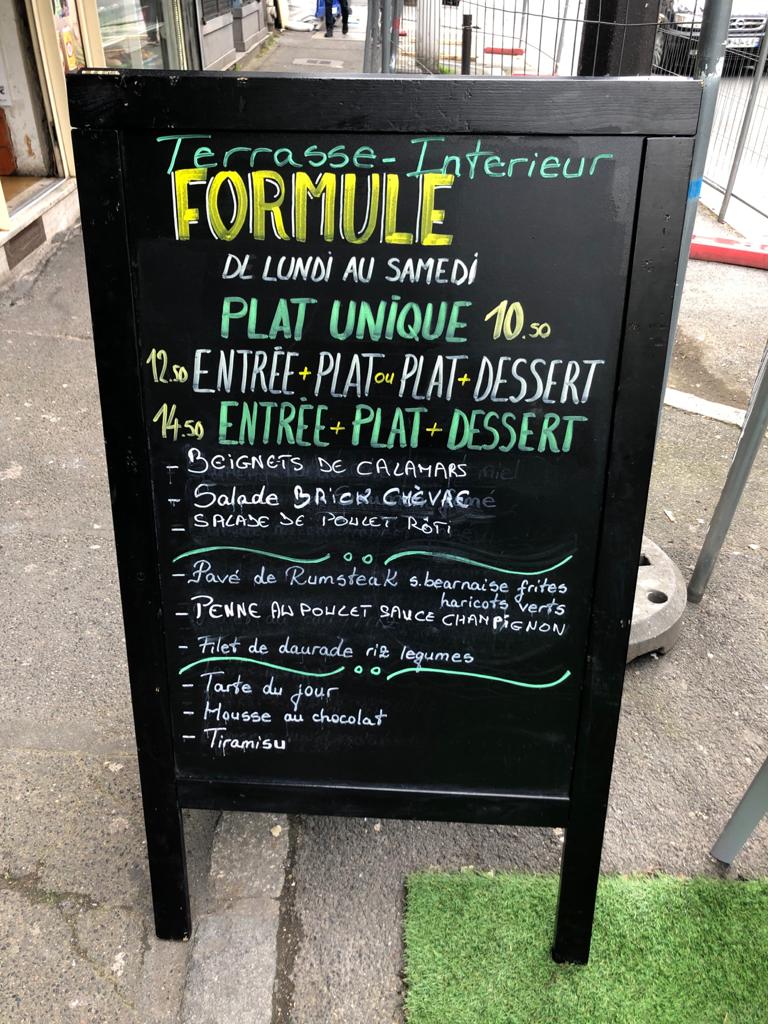 Terrasse-Interieur
FORMULE
DE LUNDI AU SAMEDI
PLAT UNIQUE 10.50
12.50 ENTRÉE+PLAT ou PLAT+DESSERT
14.50 ENTRÉE+PLAT+DESSERT
- BEIGNETS DE CALAMARS
- Salade BRICK CHÈVRE
- SALADE DE POULET RÔTI
- Pavé de Rumsteak s.bearnaise frites
haricots verts
- PENNE AU POULET SAUCE CHAMPIGNON
- Filet de daurade riz legumes
- Tarte du jour
- Mousse au chocolat
- Tiramisu